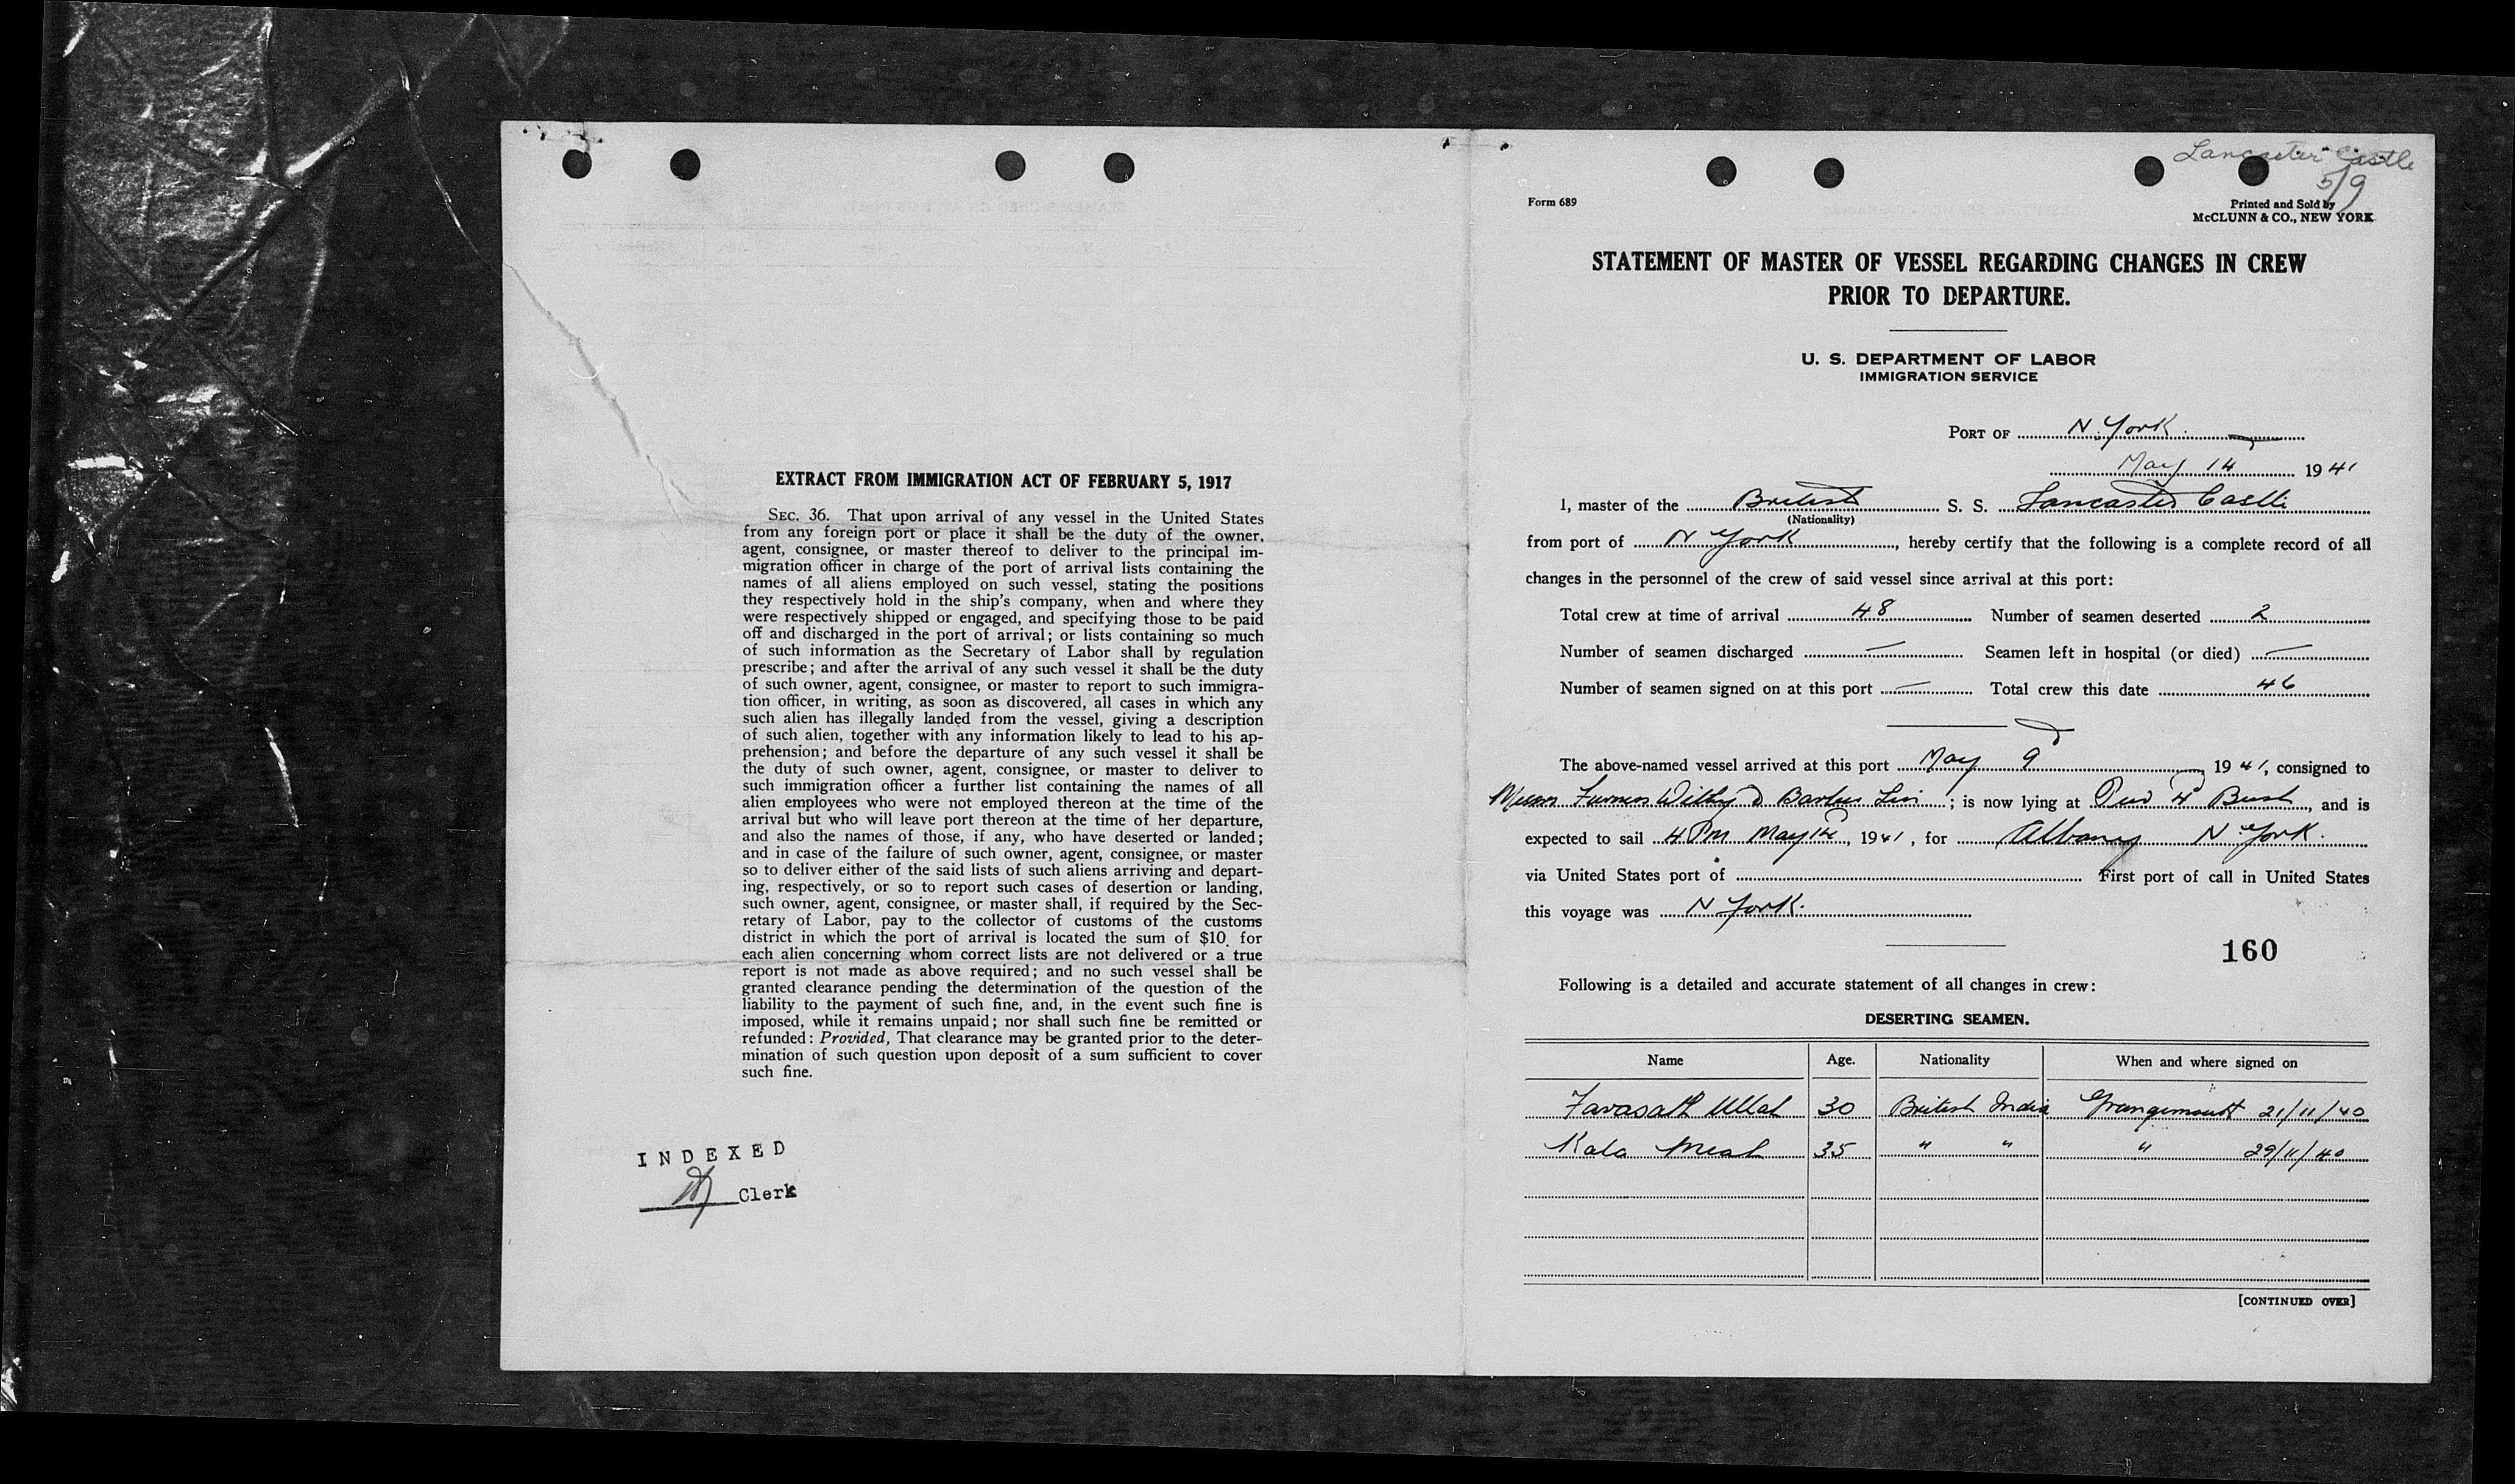 EXTRACT FROM IMMIGRATION ACT OF FEBRUARY 5, 1917
SEC. 36. That upon arrival of any vessel in the United States
from any foreign port or place it shall be the duty of the owner,
agent, consignee, or master thereof to deliver to the principal im-
migration officer in charge of the port of arrival lists containing the
names of all aliens employed on such vessel, stating the positions
they respectively hold in the ship's company, when and where they
were respectively shipped or engaged, and specifying those to be paid
off and discharged in the port of arrival; or lists containing so much
of such information as the Secretary of Labor shall by regulation
prescribe; and after the arrival of any such vessel it shall be the duty
of such owner, agent, consignee, or master to report to such immigra-
tion officer, in writing, as soon as discovered, all cases in which any
such alien has illegally landed from the vessel, giving a description
of such alien, together with any information likely to lead to his ap-
prehension; and before the departure of any such vessel it shall be
the duty of such owner, agent, consignee, or master to deliver to
such immigration officer a further list containing the names of all
alien employees who were not employed thereon at the time of the
arrival but who will leave port thereon at the time of her departure,
and also the names of those, if any, who have deserted or landed;
and in case of the failure of such owner, agent, consignee, or master
so to deliver either of the said lists of such aliens arriving and depart-
ing, respectively, or so to report such cases of desertion or landing,
such owner, agent, consignee, or master shall, if required by the Sec-
retary of Labor, pay to the collector of customs of the customs
district in which the port of arrival is located the sum of $10 for
each alien concerning whom correct lists are not delivered or a true
report is not made as above required; and no such vessel shall be
granted clearance pending the determination of the question of the
liability to the payment of such fine, and, in the event such fine is
imposed, while it remains unpaid; nor shall such fine be remitted or
refunded: Provided, That clearance may be granted prior to the deter-
mination of such question upon deposit of a sum sufficient to cover
such fine.
INDEXED
Clerk
Lancaster Castle
5/9
Form 689
Printed and Sold by
McCLUNN & CO., NEW YORK
STATEMENT OF MASTER OF VESSEL REGARDING CHANGES IN CREW
PRIOR TO DEPARTURE.
U. S. DEPARTMENT OF LABOR
IMMIGRATION SERVICE
PORT OF N. York
May 14 1941
I, master of the British S. S. Lancaster Castle
(Nationality)
from port of N York, hereby certify that the following is a complete record of all
changes in the personnel of the crew of said vessel since arrival at this port:
Total crew at time of arrival 48 Number of seamen deserted 2
Number of seamen discharged — Seamen left in hospital (or died) —
Number of seamen signed on at this port — Total crew this date 46
The above-named vessel arrived at this port May 9 1941, consigned to
Furness Withy Barber ; is now lying at Pier 4 Bush, and is
expected to sail 4 PM May 14, 1941, for Albany N York.
via United States port of First port of call in United States
this voyage was N York.
160
Following is a detailed and accurate statement of all changes in crew:
DESERTING SEAMEN.
Name Age. Nationality When and where signed on
Favasath Ullah 30 British India Grangemouth 21/11/40
Kala Meah 35 " " " 29/11/40
[CONTINUED OVER]